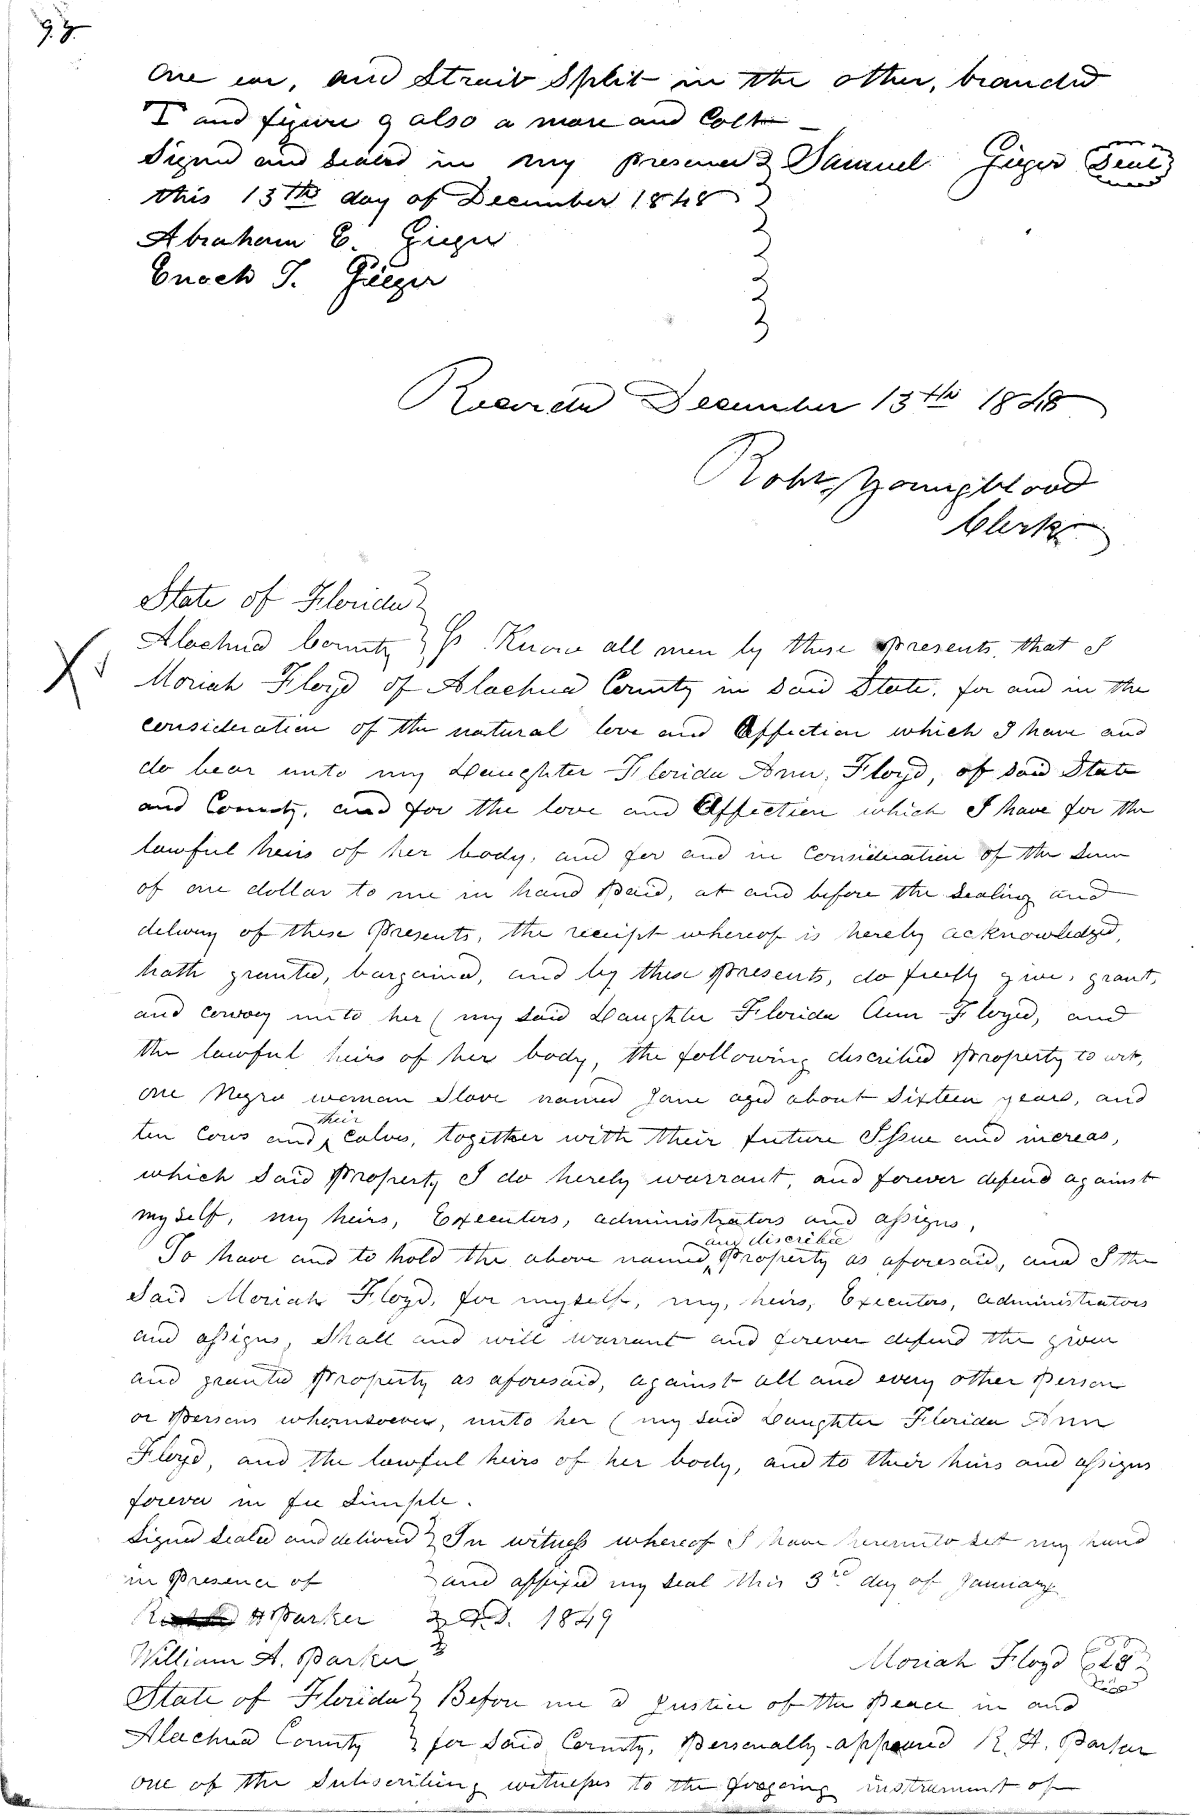 one ear, and Strait Split in the other, branded
T and figure 9 also a mare and Colt
Signed and Sealed in my presence Samuel Gieger Seal
this 13th day of December 1848
Abraham E. Gieger
Enoch T. Gieger
Recorded December 13th 1848
Robt. Youngblood
Clerk
State of Florida
Alachua County Ss Know all men by these Presents, that I
Moriah Floyd of Alachua County in said State, for and in the
consideration of the natural love and Affection which I have and
do bear unto my Daughter Florida Ann, Floyd, of said State
and County, and for the love and Affection which I have for the
lawful heirs of her body, and for and in consideration of the Sum
of one dollar to me in hand Paid, at and before the Sealing and
delivery of these Presents, the receipt whereof is hereby acknowledged,
hath granted, bargained, and by these Presents, do freely give, grant,
and convey unto her ( my said Daughter Florida Ann Floyd, and
the lawful heirs of her body, the following discribed Property to wit,
one Negro woman Slave named Jane aged about Sixteen years, and
ten Cows and their Calves, together with their future Issue and increas,
which Said Property I do hereby warrant, and forever defend against
myself, my heirs, Executors, administrators and assigns,
To have and to hold the above named, and discribed Property as aforesaid, and I the
Said Moriah Floyd, for myself, my, heirs, Executors, administrators
and assigns, Shall and will warrant and forever defend the given
and granted Property as aforesaid, against all and every other Person
or Persons whomsoever, unto her ( my said Daughter Florida Ann
Floyd, and the lawful heirs of her body, and to their heirs and assigns
forever in fee Simple.
Signed Sealed and delivered In witness whereof I have hereunto set my hand
in Presence of and affixed my Seal this 3rd day of January
H Parker A.D. 1849
William A. Parker
Moriah Floyd LS
State of Florida Before me a Justice of the Peace in and
Alachua County for Said County, Personally appeared R. H. Parker
one of the Subscribing witnesses to the forgoing instrument of